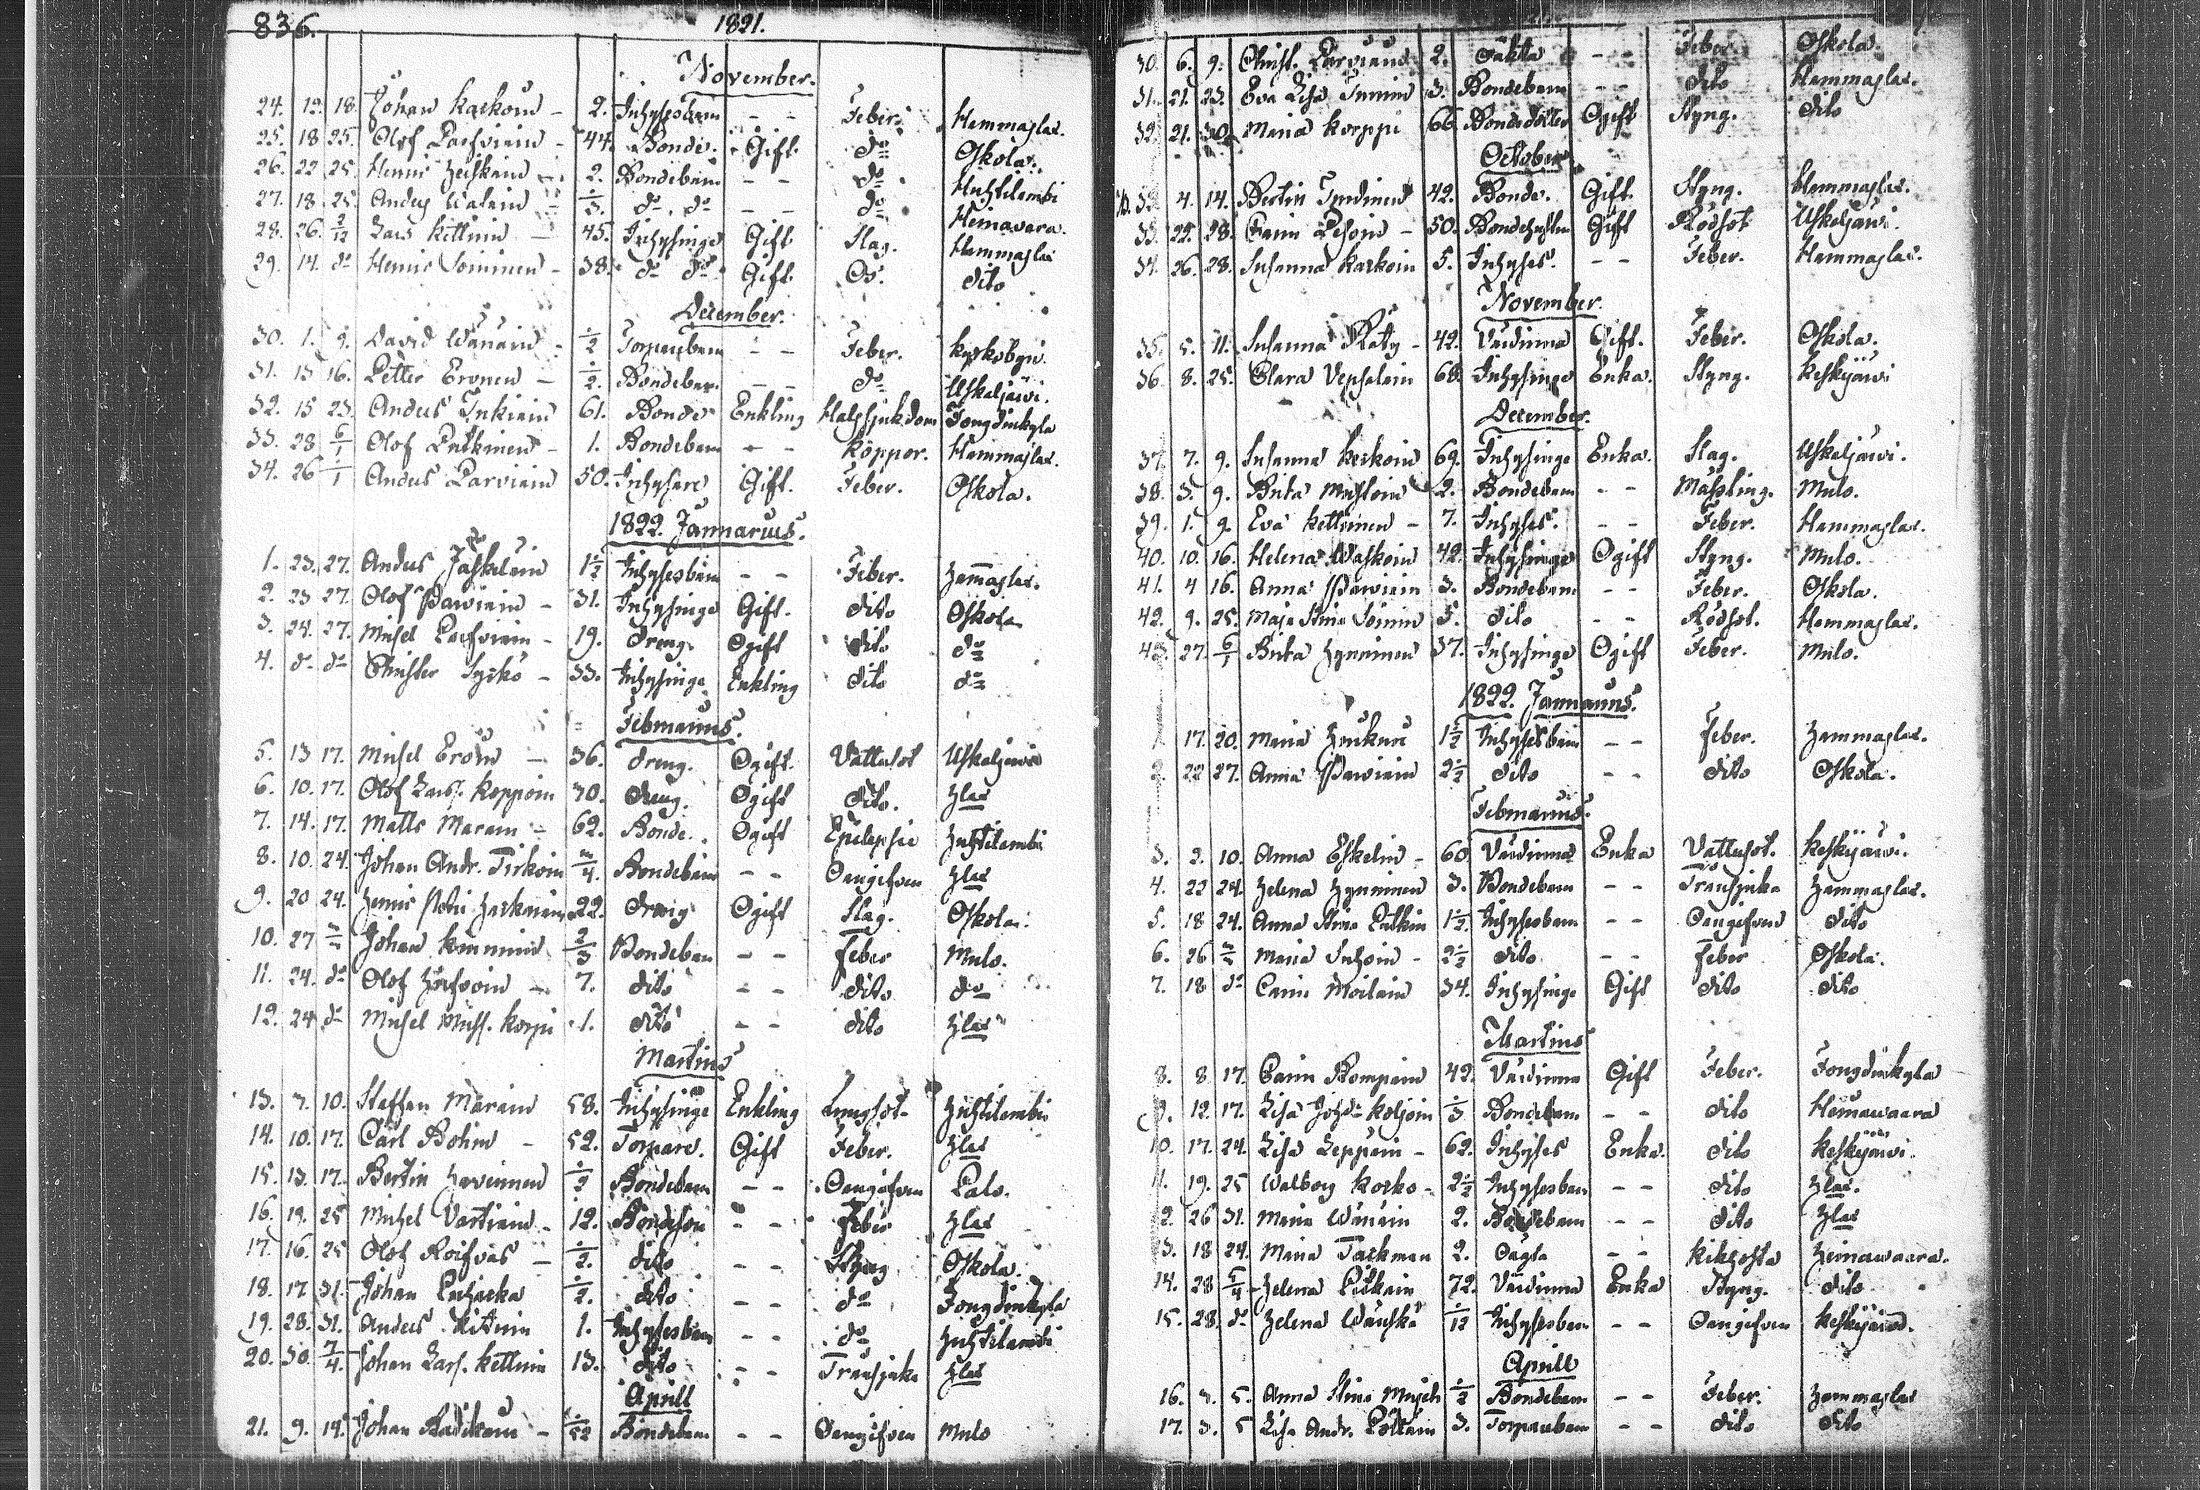 836. 1821.
November.
24. 12. 18. Johan Karkoin - 2. Inhysesbarn - - Feber. Hammaslax.
25. 18 25. Olof Parfviain - 44. Bonde. Gift. do Oskola.
26. 22 25. Henric - 2. Bondebarn - - do Huhtilambi
27. 18 25. Anders - 1/3. do do - - do Heinavara.
28. 26. 2/12 Lars Kettuin - 45. Inhysinge Gift Slag. Hammaslax
29. 14. do Henric Soininen - 38. do do Gift. dito
December.
30. 1. 9. David Wänäin - 1/2 Torparebarn - - Feber. Kyrkobyn.
31. 13 16. Petter Eronen - 1/2. Bondebarn - - do Uskaljärvi.
32. 15 23. Anders Inkinin 61. Bonde Enkling Halssjukdom Jongdinkyla
33. 28 6/1 Olof Putkinen - 1. Bondebarn - - Koppor. Hammaslax.
34. 26 1/1 Anders Parviain 50. Inhysare Gift. Feber. Oskola.
1822. Januarius.
1. 23. 27. Anders Jäskeläin 1 1/2 Inhysesbarn - - Feber. Hammaslax.
2. 23 27. Olof Parviain - 31. Inhysinge Gift. dito Oskola
3. 24. 27. Michel Parfviain - 19. Dreng. Ogift dito do
4. do do Christer Syrkö - 33. Inhysinge Enkling dito do
Februarius.
5. 13 17. Michel Eroin - 36. Dreng. Ogift. Vattusot Uskaljärvi
6. 10. 17. Olof Larss. Koppoin 30. Dreng. Ogift dito. Hlax
7. 14. 17. Matts Marain - 62. Bonde. Ogift Epilepsie Huhtilambi
8. 10. 24. Johan Andr. Tirkoin 3/4. Bondebarn - - Oangifven Hlax
9. 20 24. Henric 22. Dreng Ogift Slag. Oskola.
10. 27 3/3 Johan Kinnuin 2/3 Bondebarn - - Feber Mulo.
11. 24. do Olof Hirfvoin - 7. dito - - dito do
12. 24 do Michel Michs. Korpi 1. dito - - dito Hlax
Martius
13. 3. 10. Staffan Marain 58. Inhysinge Enkling Lungsot Huhtilambi
14. 10. 17. Carl Bohm - 52. Torpare. Gift Feber. Hlax
15. 13. 17. Bertin Havinnen 1/2 Bondebarn - - Oangifven Palo.
16. 19. 25 Michel Vartiain - 12. Bondeson - - Feber Hlax
17. 16. 25 Olof Roifvas - 1/2. dito - - Styng Oskola.
18. 17 31. Johan Puhakka 1/2. dito - - do Jongdinkyla
19. 28. 31. Anders 1. Inhysesbarn - - do Huhtilambi
20. 30. 7/4. Johan Lars. Kettuin 13. dito - - Transjuka Hlax
Aprill
21. 9. 14. Johan 1/52 Bondebarn - - Oangifven Mulo
30. 6. 9. Christ. Parviain 2. - - Feber Oskola.
31. 21. 23. Eva Lisa 3. Bondebarn - - dito Hammaslax.
32. 21. 30. Maria Korppi 66. Bondedotter Ogift Styng. dito
October
32. 4. 14. Bertin 42. Bonde. Gift. Styng. Hammaslax.
33. 22. 28. Carin Pesoin - 50. Bondehustru Gift Rödsot Uskaljärvi.
34. 26. 28. Susanna Karkoin 5. Inhyses. - - Feber. Hammaslax.
November.
35. 5. 11. Susanna Räty - 42. Värdinna Gift. Feber. Oskola.
36. 8. 25. Clara Vepsäläin 68. Inhysinge Enka. Styng. Keskijärvi
December.
37. 7. 9. Susanna Karkoin 69. Inhysinge Enka. Slag. Uskaljärvi.
38. 3. 9. Brita Mustoin 2. Bondebarn - - Mässling. Mulo.
39. 1. 9. Eva Kettuinen - 7. Inhyses. - - Feber. Hammaslax.
40. 10. 16. Helena Waskoin 42. Inhysinge Ogift Styng. Mulo.
41. 4 16. Anna Parviain 3. Bondebarn - - Feber. Oskola.
42. 9. 25. Maja Stina Soinin 5. dito - - Rödsot. Hammaslax.
43. 27. 6/1 Brita Hynninen 37. Inhysinge Ogift Feber. Mulo.
1822. Januarius.
1. 17. 20. Maria Houkuri 1 1/2 Inhysesbarn - - Feber. Hammaslax.
2. 22 27. Anna Parviain 2 1/2 dito - - dito Oskola.
Februarius.
3. 2. 10. Anna Eskelin - 60 Värdinna Enka Vattusot. Keskijärvi.
4. 22 24. Helena Hynninen 3. Bondebarn - - Transjuka Hammaslax.
5. 18 24. Anna Stina Putkin 1 1/2. Inhysesbarn - - Oangifven dito
6. 26 3/3 Maria Inhoin - 2 1/2 dito - - Feber Oskola.
7. 18 do Carin Moilain 34. Inhysinge Gift dito dito
Martius
8. 8 17. Carin Rompain 42. Värdinna Gift Feber. Jongdinkyla
9. 12 17. Lisa Koljoin 1/3 Bondebarn - - dito Heinawaara
10. 17. 24. Lisa Leppäin - 62. Inhyses Enka. dito Keskijärvi.
11. 19. 25 Walborg Korko - 2 1/2 Inhysesbarn - - dito Hlax.
2. 26 31. Maria Wänäin 2. Bondebarn - - dito Hlax
3. 18 24. Maria Tackman 2. - - Kikhosta Heinawaara.
14. 28 5/4 Helena Pitkäin 72. Värdinna Enka Styng. dito
15. 28. do Helena 1/12 Inhysesbarn - - Oangifven Keskijärvi.
Aprill
16. 3. 5. Anna Stina 1/2 Bondebarn - - Feber. Hammaslax
17. 3. 5 Lisa Andr. 3. Torparebarn - - dito dito